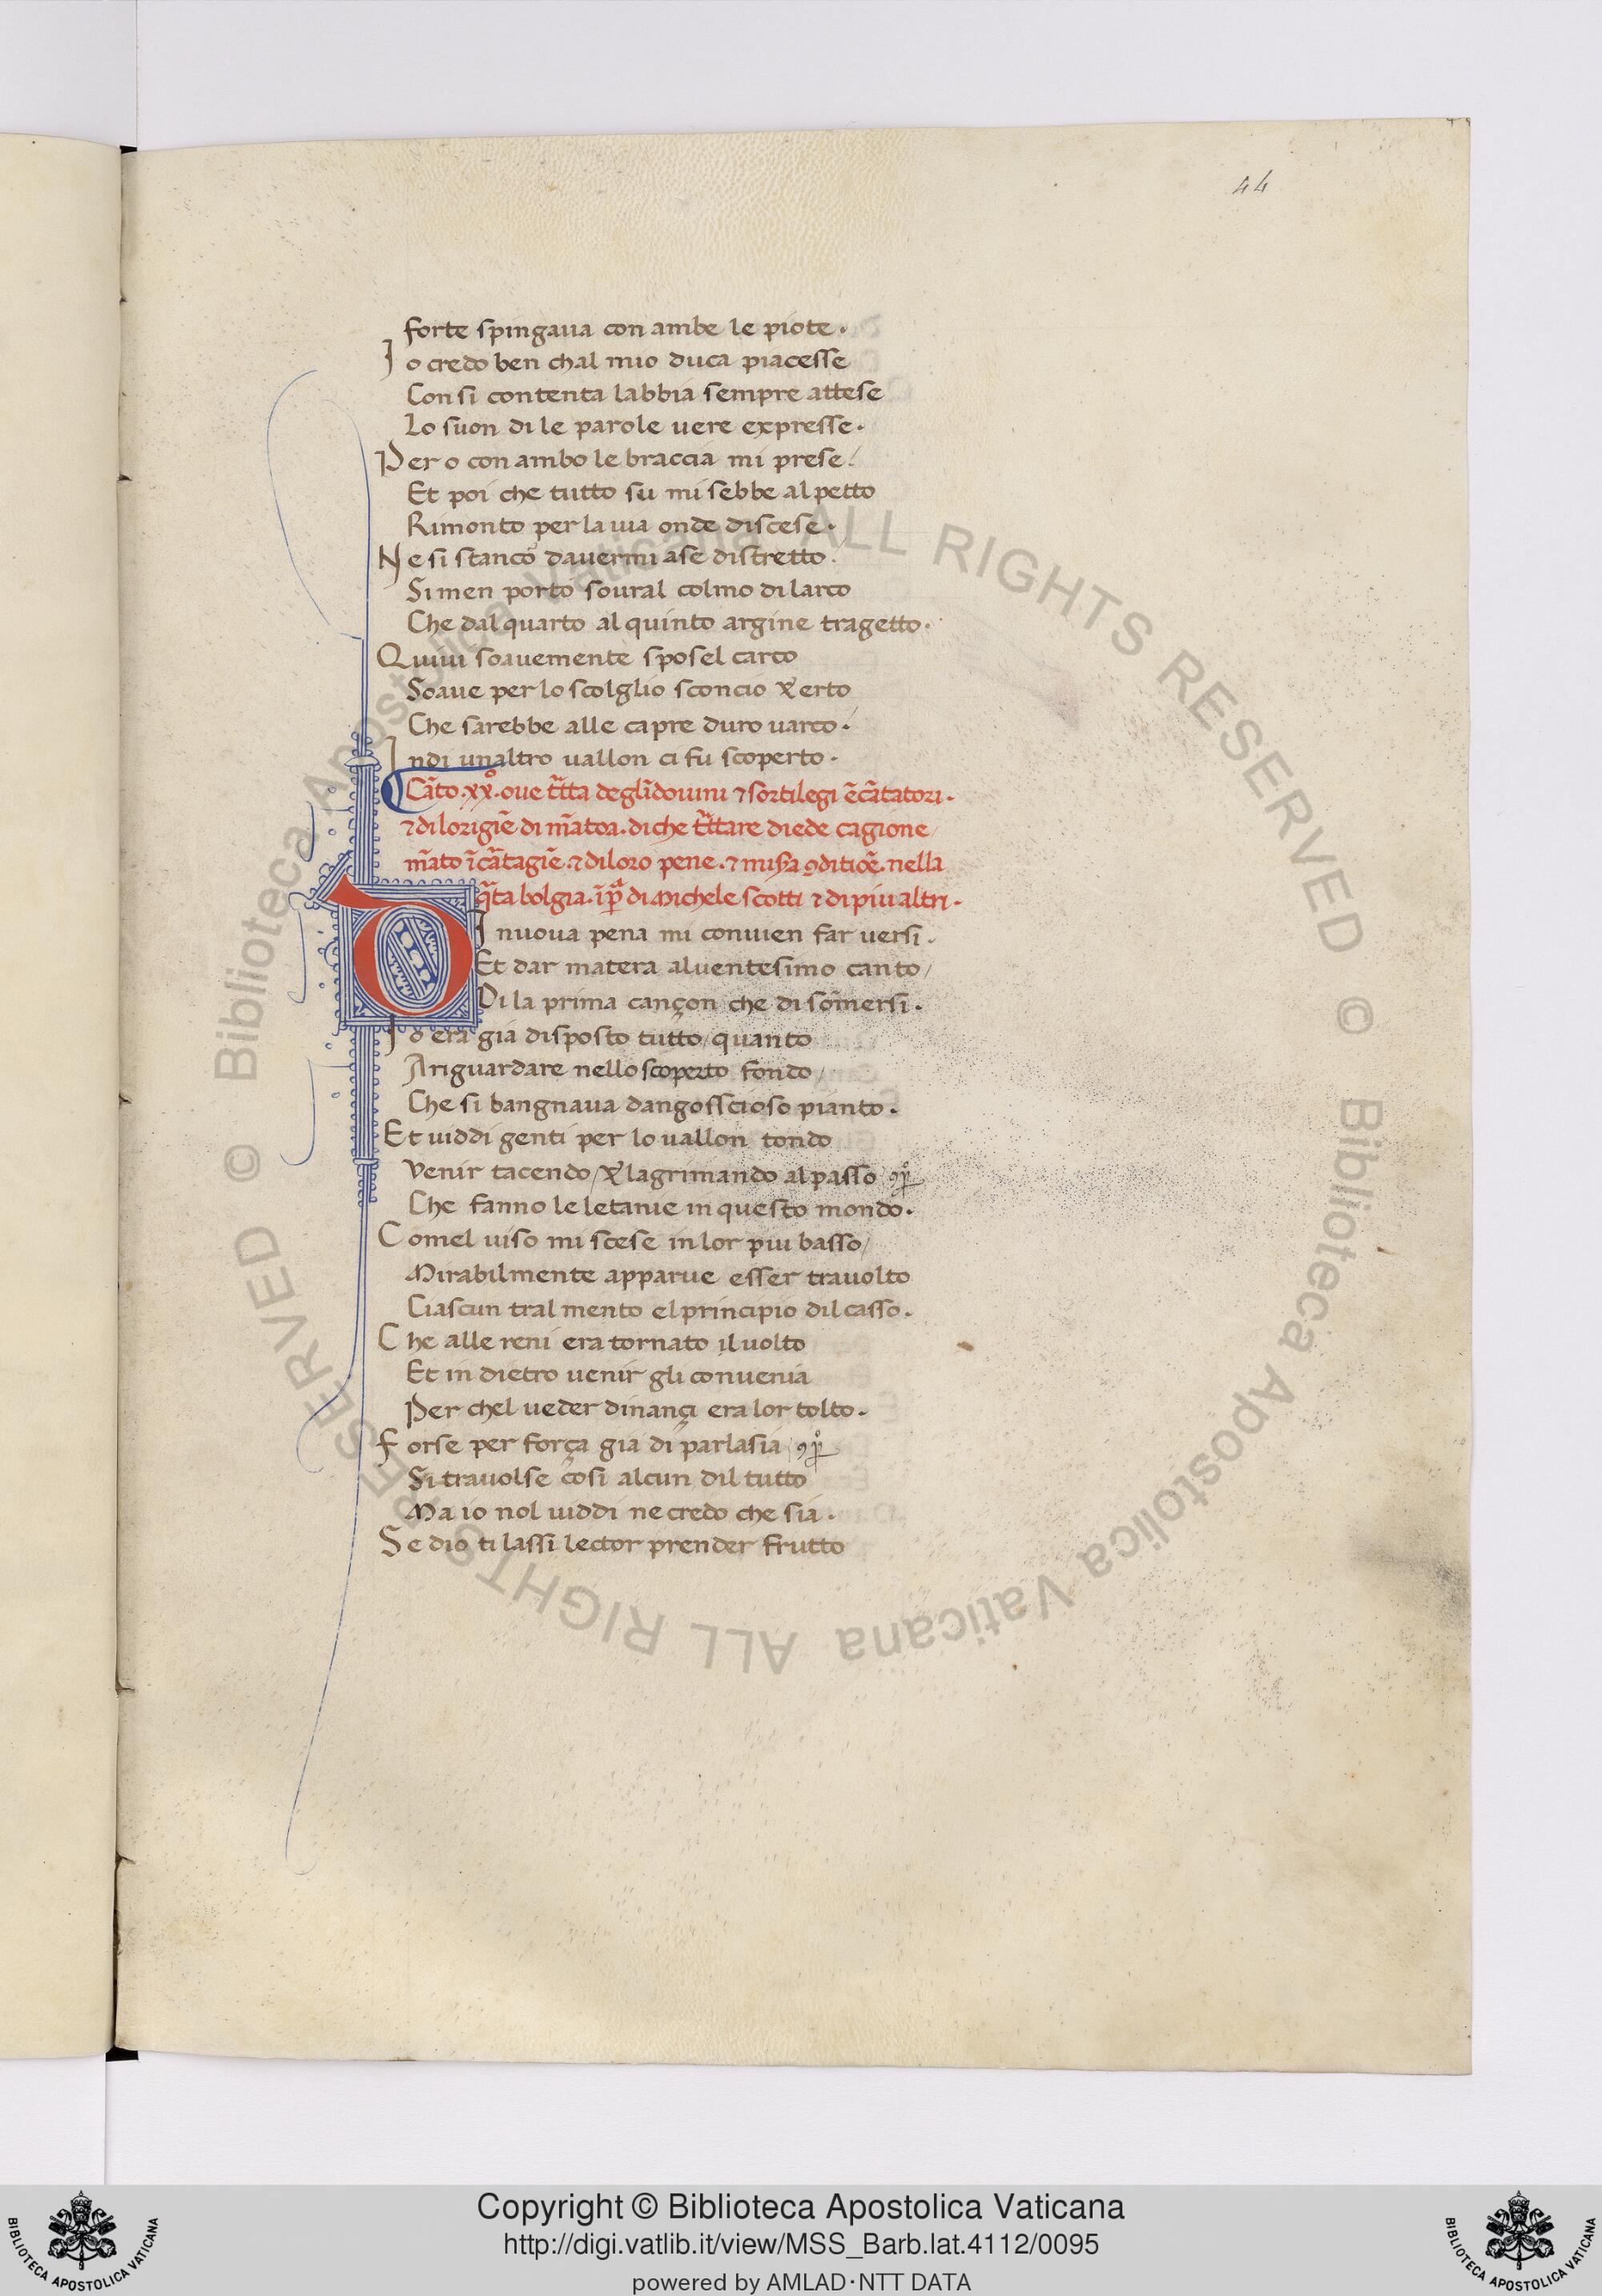 44
forte spingaua con ambe le piote·
Io credo ben chal mio duca piacesse
Con si contenta labbia sempre attese
Lo suon di le parole uere expresse·
Per o con ambo le braccia mi prese/
Et poi che tutto su mi sebbe al petto
Rimonto per la uia onde discese·
Ne si stanco dauermi ase distretto·
Si men porto soural colmo di larco
Che dal quarto al quinto argine tragetto·
Quiui soauemente sposel carco
Soaue per lo scolglio sconcio ⁊ erto
Che sarebbe alle capre duro uarco·
Indi unaltro uallon ci fu scoperto·
Cãto·xx°·oue tr̃tta deglĩdouini ⁊ sortilegi ẽcãtatori·
⁊ di lorigiẽ di mãtoa·di che tr̃ttare diede cagione/
mãto ĩcãtagiẽ·⁊ diloro pene·⁊ misa ꝯditiõe·nella
q̃ta bolgia·ĩp̃a di Michele scotti ⁊ di piu altri·
DI nuoua pena mi conuien far uersi·
Et dar matera aluentesimo canto/
Di la prima cançon che di som̃ersi·
Io era gia disposto tutto/quanto
Ariguardare nello scoperto fondo/
Che si bangnaua dangosscioso pianto·
Et uiddi genti per lo uallon tondo
Venir tacendo/⁊ lagrimando al passo
Che fanno le letanie in questo mondo·
Comel uiso mi scese in lor piu basso/
Mirabilmente apparue esser trauolto
Ciascun tral mento el principio dil casso·
Che alle reni era tornato il uolto
Et in dietro uenir gli conuenia
Per chel ueder dinançi era lor tolto·
Forse per força gia di parlasia
Si trauolse cosi alcun dil tutto
Ma io nol uiddi ne credo che sia·
Se dio ti lassi lector prender frutto
© Biblioteca Apostolica Vaticana ALL RIGHTS RESERVED © Biblioteca Apostolica Vaticana ALL RIGHTS RESERVED
Copyright © Biblioteca Apostolica Vaticana
http://digi.vatlib.it/view/MSS_Barb.lat.4112/0095
powered by AMLAD·NTT DATA
BIBLIOTECA APOSTOLICA VATICANA
BIBLIOTECA APOSTOLICA VATICANA